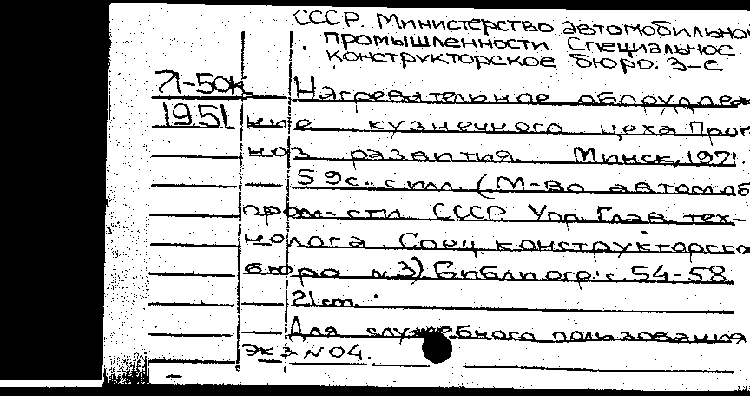 СССР. Министерство автомобильной
промышленности. Специальное
конструкторское бюро. 3-е
71-50к Нагревательное оборудова-
1951 ние кузнечного цеха. Прог
ноз развития. Минск, 1971.
59с. с илл. (М-во автомоб
пром-сти СССР. Упр. Глав. тех-
нолога. Спец. конструкторско
бюро №3) Библиогр: с. 54-58
21 cm.
Для служебного пользования
Экз №04.